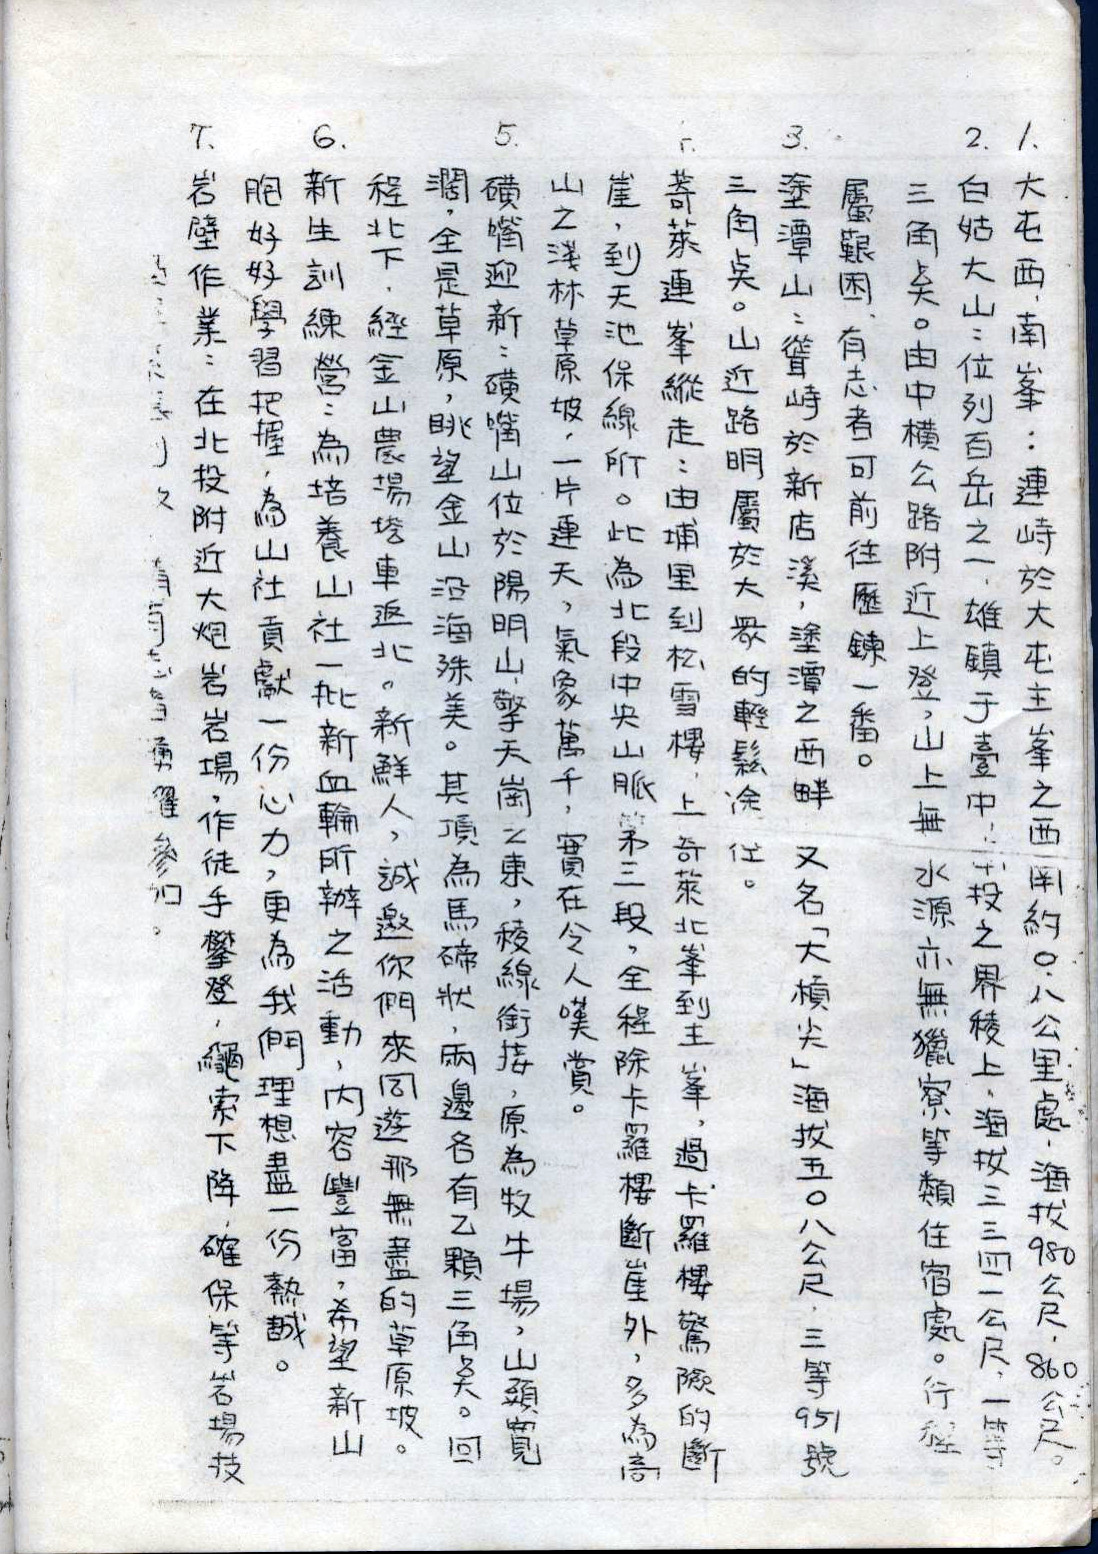 1. 大屯西、南峯：連峙於大屯主峯之西南約0.八公里處，海拔980公尺，860公尺。
2. 白姑大山：位列百岳之一，雄鎮于臺中，投之界稜上，海拔三三四一公尺，一等
三角點。由中橫公路附近上登，山上無水源亦無獵寮等類住宿處。行程
屬艱困，有志者可前往歷鍊一番。
3. 塗潭山：聳峙於新店溪，塗潭之西畔 又名「大槓尖」海拔五0八公尺，三等951號
三角點。山近路明屬於大眾的輕鬆途徑。
奇萊連峯縱走：由埔里到松雪樓，上奇萊北峯到主峯，過卡羅樓驚險的斷
崖，到天池保線所。此為北段中央山脈第三段，全程除卡羅樓斷崖外，多為高
山之淺林草原坡，一片連天，氣象萬千，實在令人嘆賞。
5. 磺嘴迎新：磺嘴山位於陽明山擎天崗之東，稜線銜接，原為牧牛場，山頭寬
濶，全是草原，眺望金山沿海殊美。其頂為馬碲狀，兩邊各有乙顆三角點。回
程北下，經金山農場塔車返北。新鮮人，誠邀你們來同遊那無盡的草原坡。
6. 新生訓練營：為培養山社一批新血輪所辦之活動，內容豐富，希望新山
胞好好學習把握，為山社貢獻一份心力，更為我們理想盡一份熱誠。
7. 岩壁作業：在北投附近大炮岩岩場，作徒手攀登，繩索下降，確保等岩場技
踴躍參加。